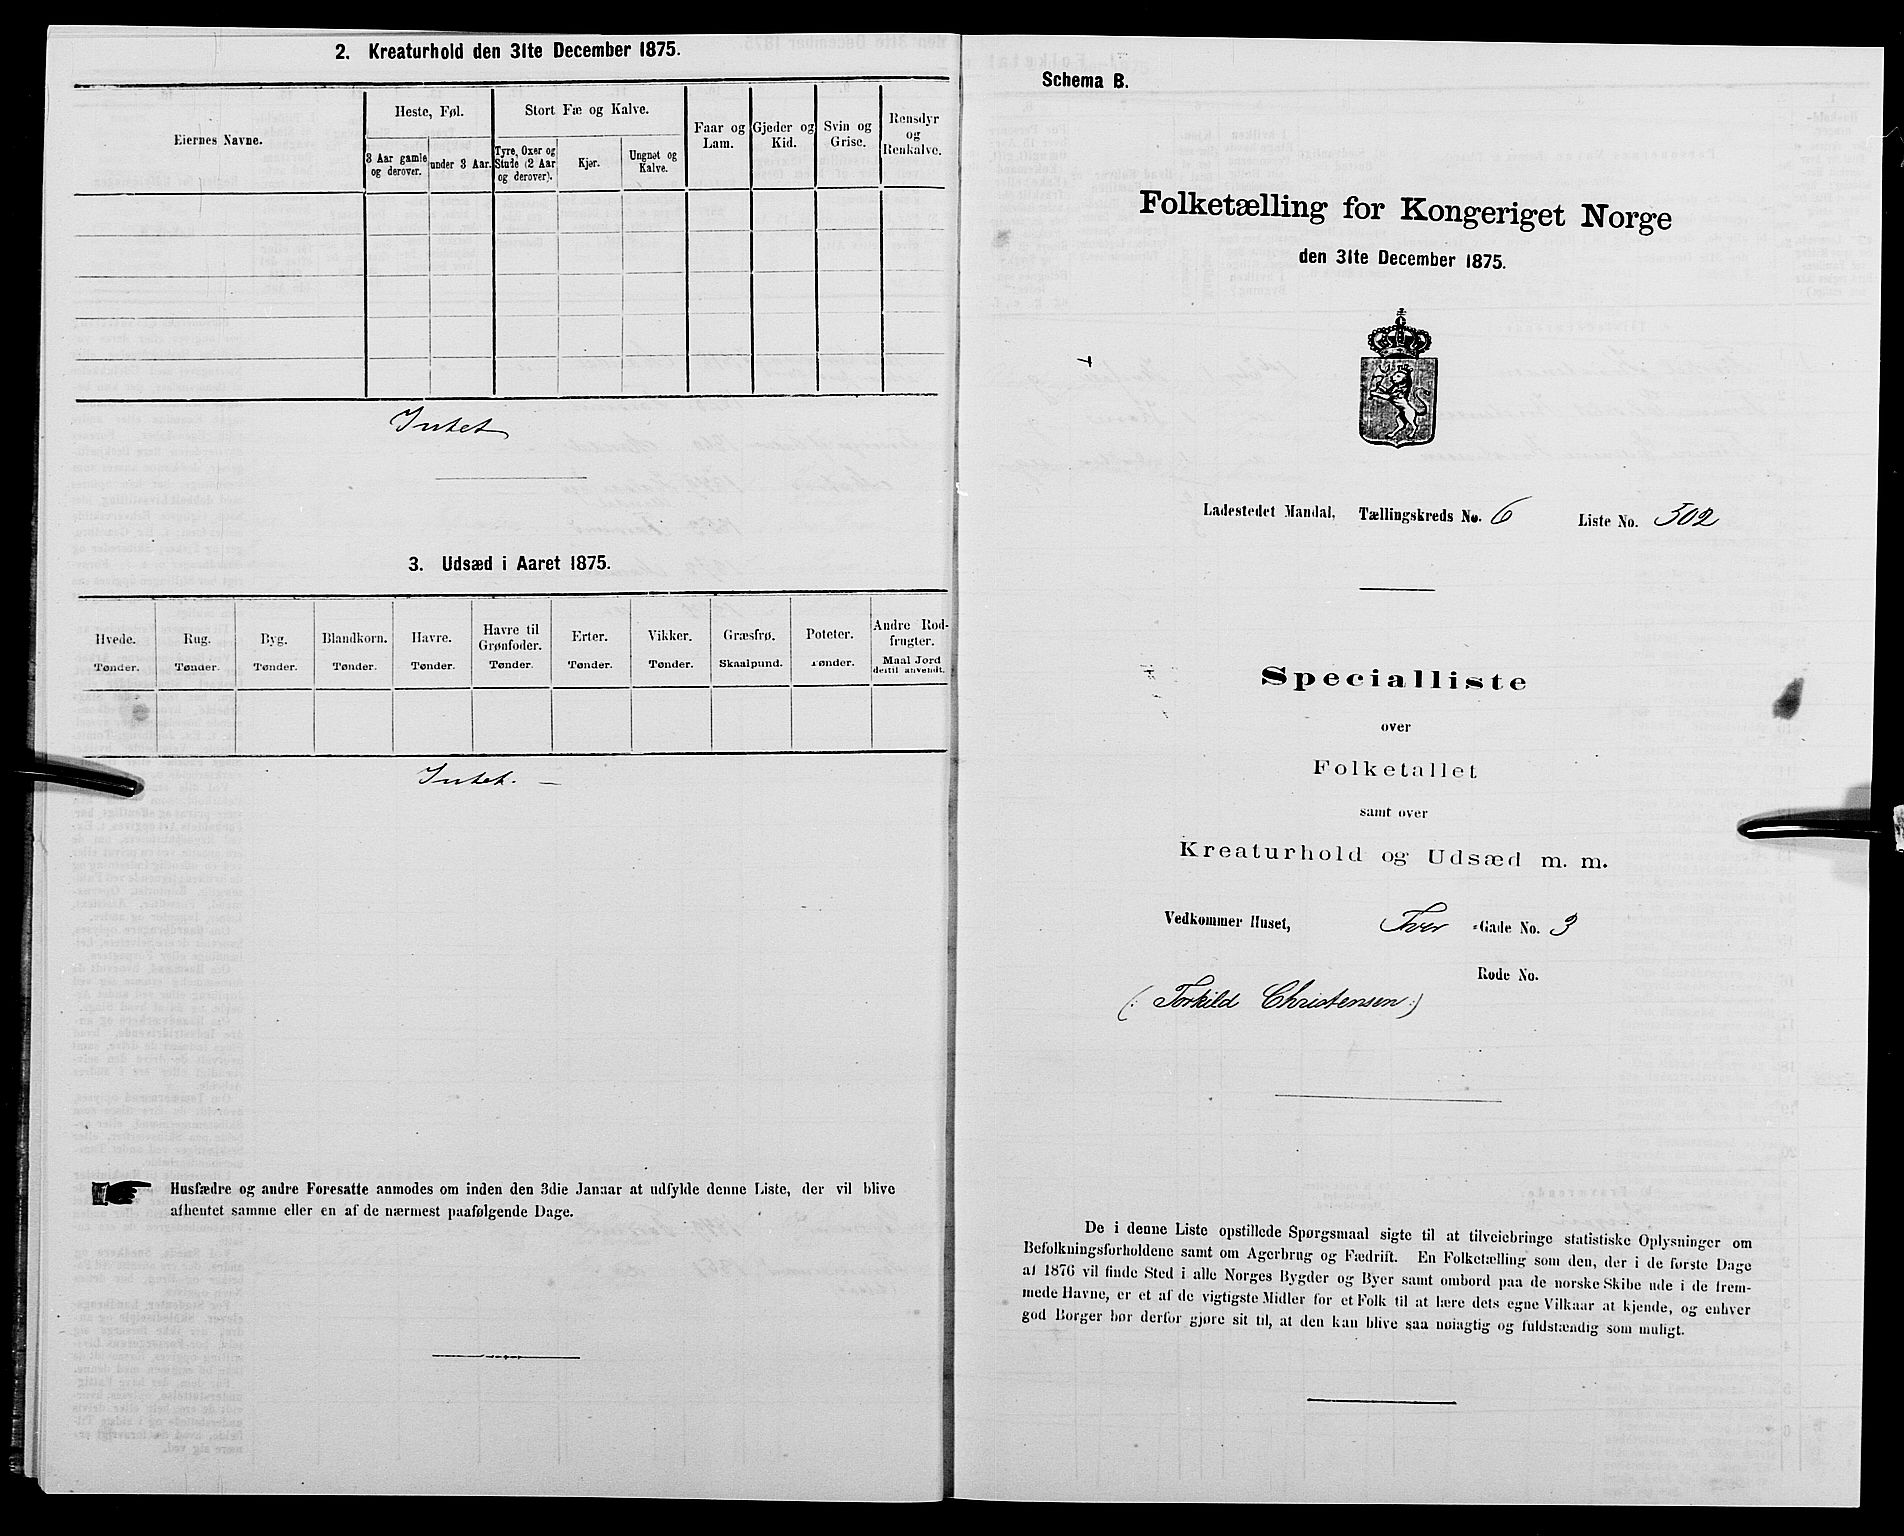 2. Kreaturhold den 31te December 1875.
Eiernes Navne.
Heste, Føl.
3 Aar gamle og derover.
under 3 Aar.
Stort Fæ og Kalve.
Tyre, Oxer og Stude (2 Aar og derover).
Kjør.
Ungnøt og Kalve.
Faar og Lam.
Gjeder og Kid.
Svin og Grise.
Rensdyr og Renkalve.
Intet
3. Udsæd i Aaret 1875.
Hvede. Rug. Byg. Blandkorn. Havre. Havre til Grønfoder. Erter. Vikker. Græsfrø. Poteter. Andre Rodfrugter.
Tønder. Tønder. Tønder. Tønder. Tønder. Tønder. Tønder. Tønder. Skaalpund. Tønder. Maal Jord dertil anvendt.
Intet. —
Husfædre og andre Foresatte anmodes om inden den 3die Januar at udfylde denne Liste, der vil blive
afhentet samme eller en af de nærmest paafølgende Dage.
Schema B.
Folketælling for Kongeriget Norge
den 31te December 1875.
Ladestedet Mandal, Tællingskreds No. 6 Liste No. 502
Specialliste
over
Folketallet
samt over
Kreaturhold og Udsæd m. m.
Vedkommer Huset, Tver -Gade No. 3
Rode No.
(: Torkild Christensen :)
De i denne Liste opstillede Spørgsmaal sigte til at tilveiebringe statistiske Oplysninger om
Befolkningsforholdene samt om Agerbrug og Fædrift. En Folketælling som den, der i de første Dage
af 1876 vil finde Sted i alle Norges Bygder og Byer samt ombord paa de norske Skibe ude i de frem-
mede Havne, er et af de vigtigste Midler for et Folk til at lære dets egne Vilkaar at kjende, og enhver
god Borger bør derfor gjøre sit til, at den kan blive saa nøiagtig og fuldstændig som muligt.